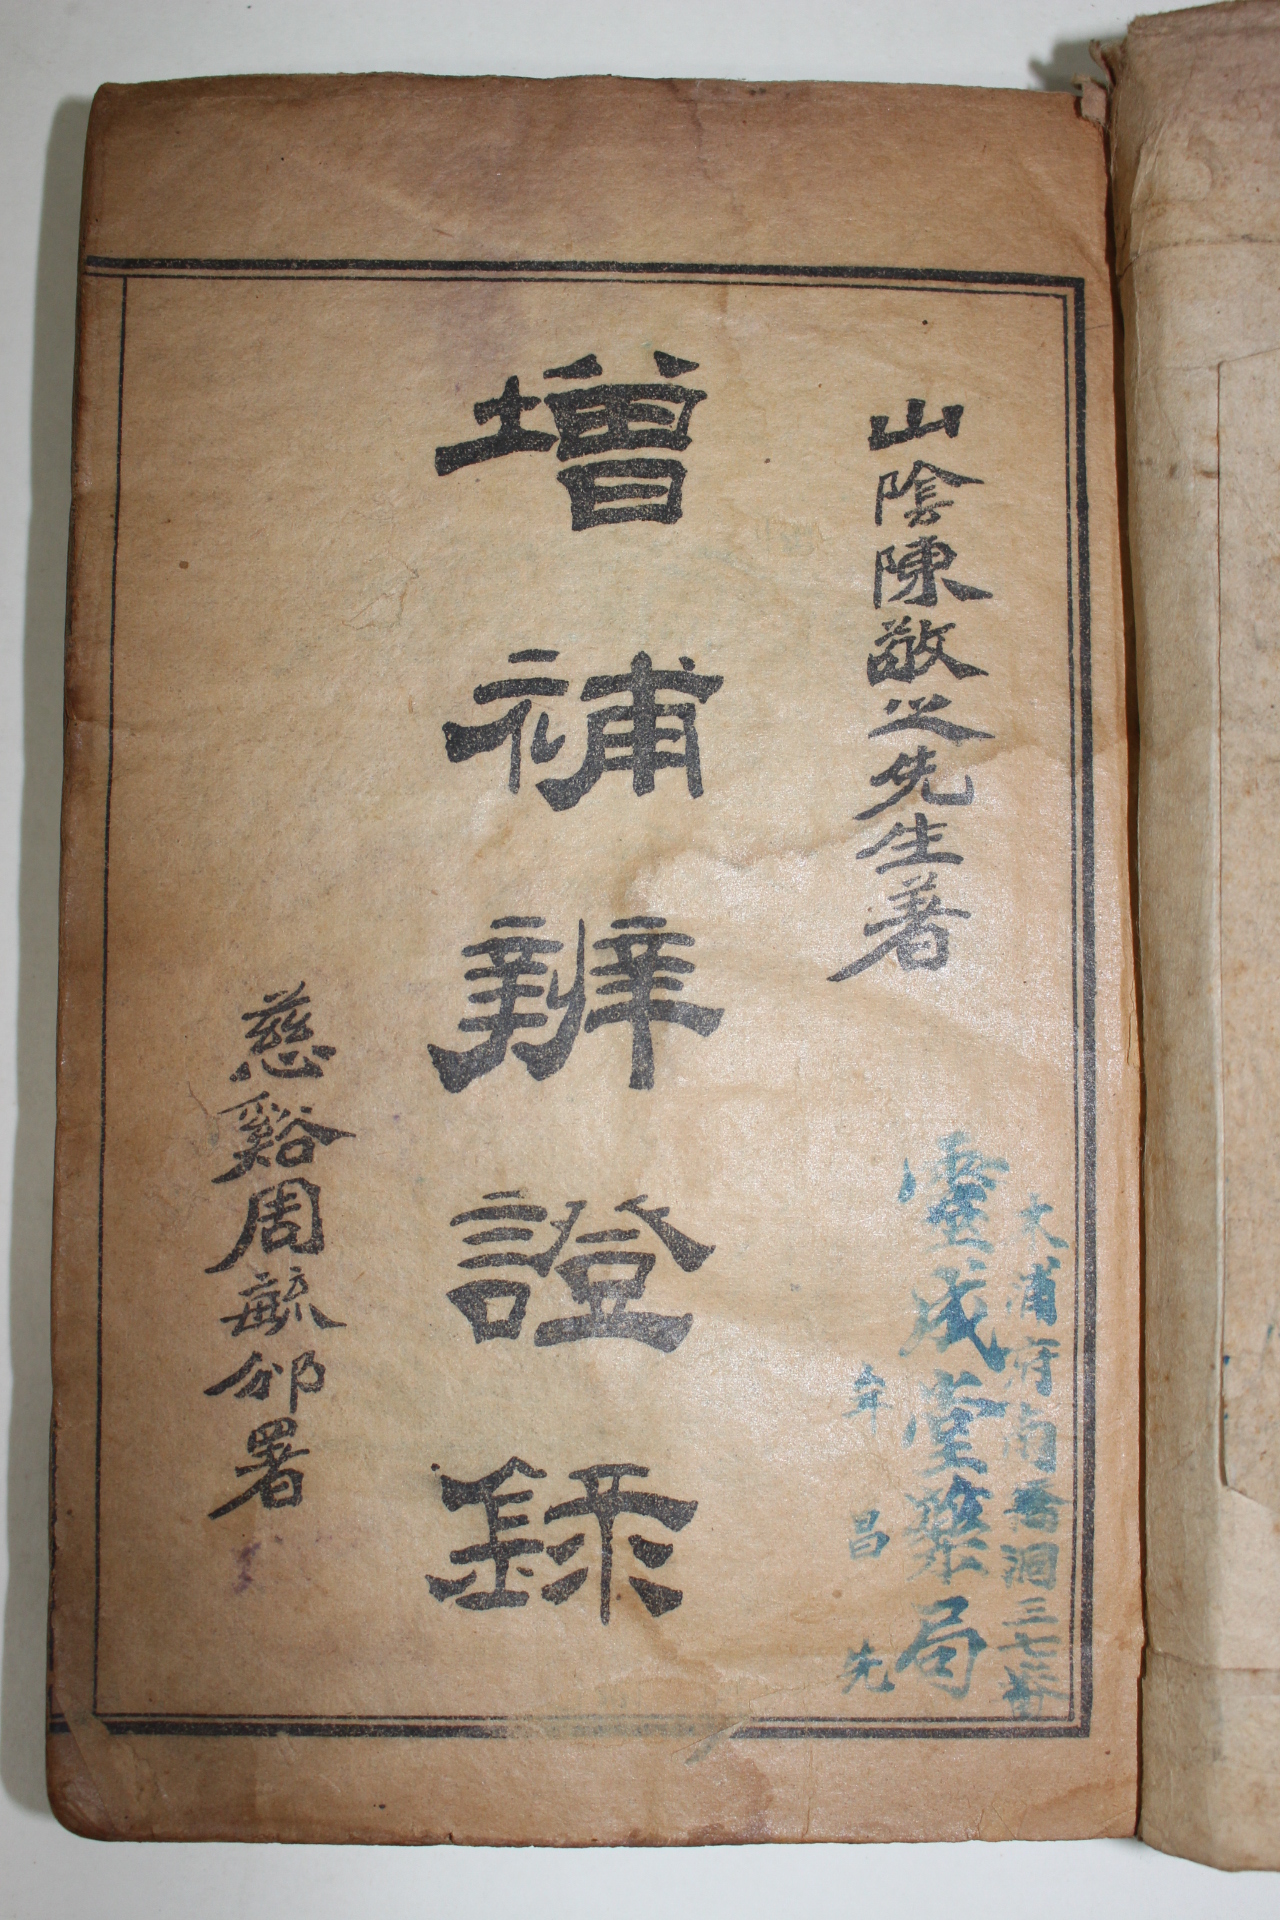 山陰陳敬之先生著
增補辨證錄
慈谿周毓邠署
大浦府南喬洞三七
靈成堂藥局
昌先